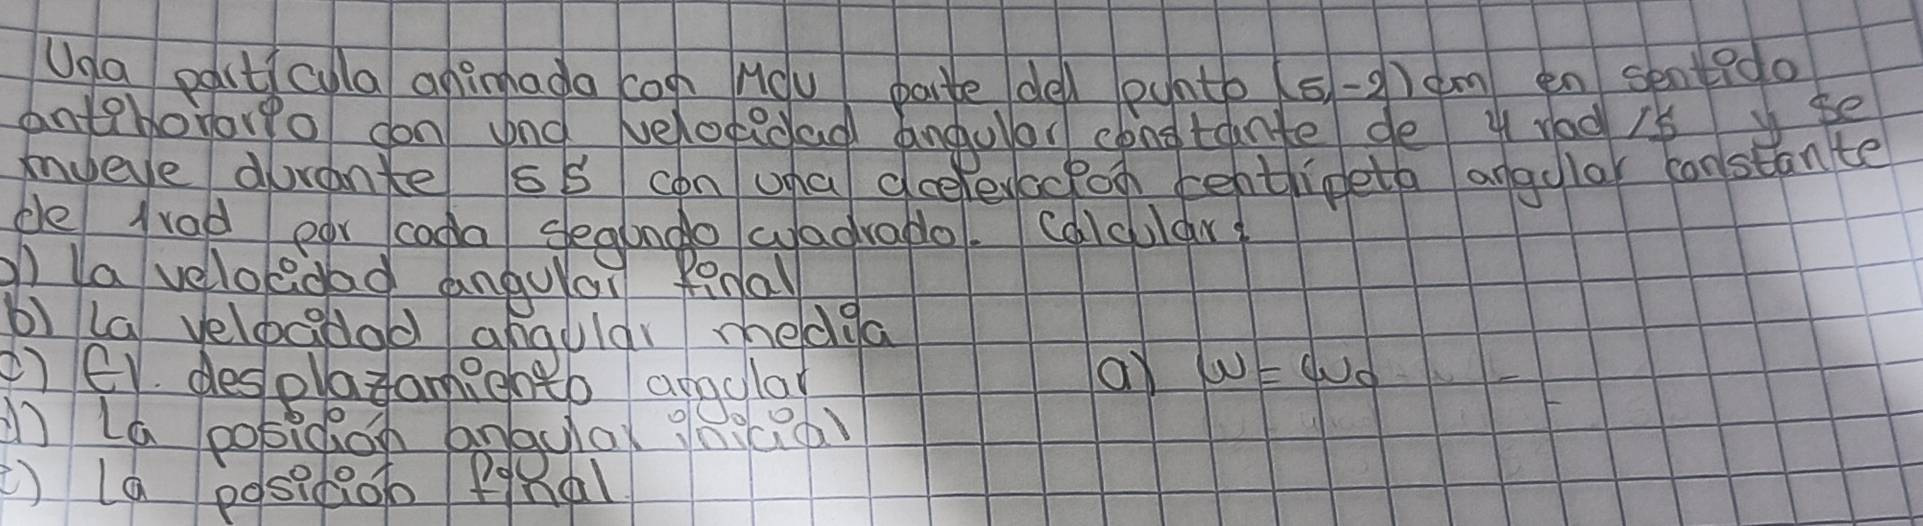 Una partícula animada con MCU parte del punto (5,-2) cm en sentido
antihorario con una velocidad angular constante de 4 rad/s y se
mueve durante 5s con una aceleración centrípeta angular constante
de 1rad por cada segundo cuadrado. Calcular:
a) La velocidad angular final
b) La velocidad angular media
c) El. desplazamiento angular
a) W = W0 -
d) La posición angular inicial
e) La posición final.